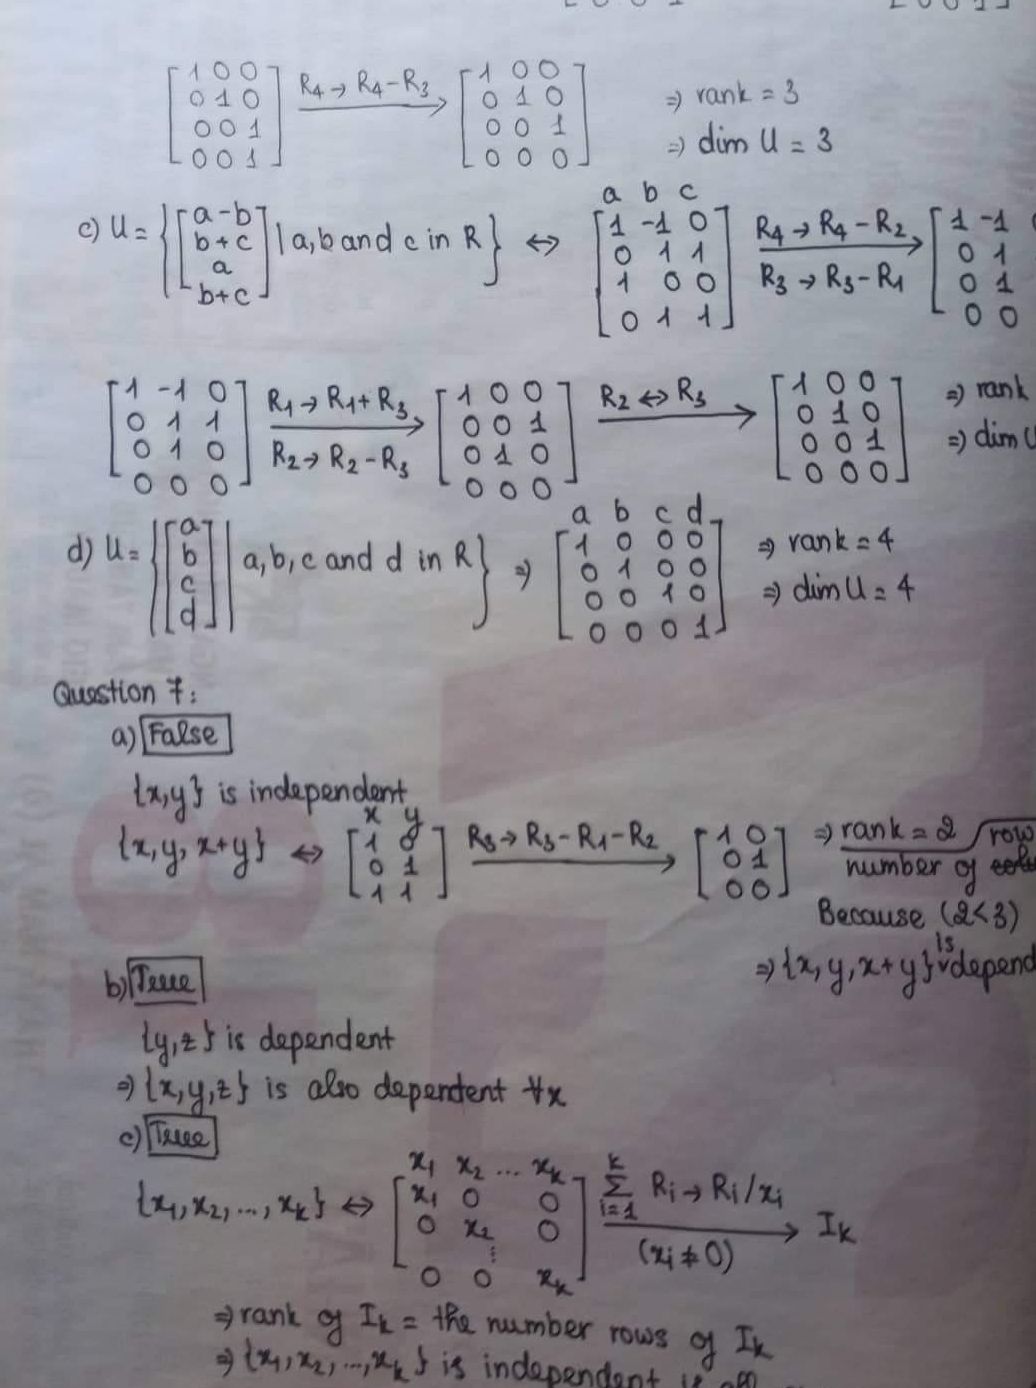 [1 0 0; 0 1 0; 0 0 1; 0 0 1] R4 → R4 - R3 [1 0 0; 0 1 0; 0 0 1; 0 0 0] ⇒ rank = 3
⇒ dim U = 3
c) U = { [a-b; b+c; a; b+c] | a, b and c in R } ⇔ a b c [1 -1 0; 0 1 1; 1 0 0; 0 1 1] R4 → R4 - R2 R3 → R3 - R1 [1 -1; 0 1; 0 1; 0 0
[1 -1 0; 0 1 1; 0 1 0; 0 0 0] R1 → R1 + R3 R2 → R2 - R3 [1 0 0; 0 0 1; 0 1 0; 0 0 0] R2 ⇔ R3 [1 0 0; 0 1 0; 0 0 1; 0 0 0] ⇒ rank
⇒ dim U
d) U = { [a; b; c; d] | a, b, c and d in R } ⇒ a b c d [1 0 0 0; 0 1 0 0; 0 0 1 0; 0 0 0 1] ⇒ rank = 4
⇒ dim U = 4
Question 7:
a) False
{x,y} is independent
{x, y, x+y} ⇔ x y [1 0; 0 1; 1 1] R3 → R3 - R1 - R2 [1 0; 0 1; 0 0] ⇒ rank = 2 row
number of
Because (2<3)
⇒ {x, y, x+y} is depend
b) True
{y,z} is dependent
⇒ {x,y,z} is also dependent ∀x
c) True
{x1, x2, ..., xk} ⇔ x1 x2 ... xk [x1 0 0; 0 x2 0; ...; 0 0 xk] k Σ i=1 Ri → Ri/xi (xi ≠ 0) Ik
⇒ rank of Ik = the number rows of Ik
⇒ {x1, x2, ..., xk} is independent